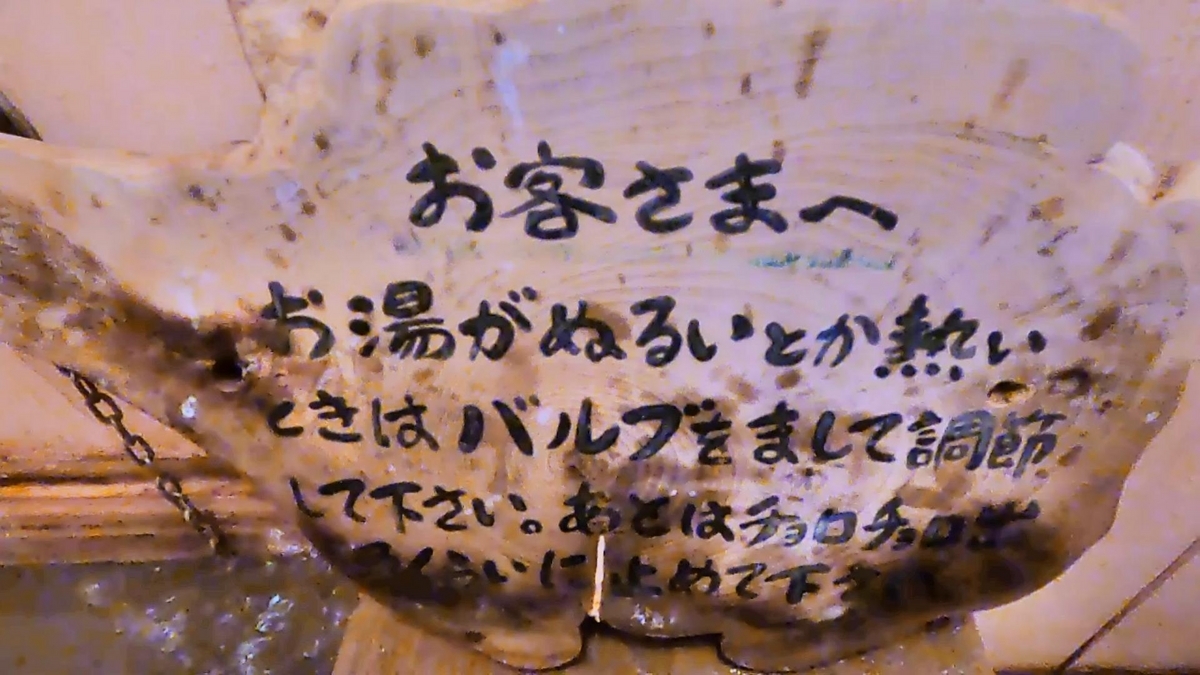 お客さまへ
お湯がぬるいとか熱い
ときはバルブをまして調節
して下さい。あとはチョロチョロ出
るくらいに止めて下さい